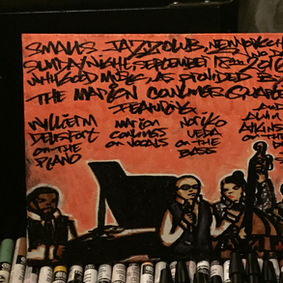 SMALLS JAZZ CLUB, NEW YORK
SUNDAY NIGHT, SEPTEMBER 18TH 2016
WITH GOOD MUSIC, AS PROVIDED BY
THE MARION COWINGS QUARTET
FEATURING
WILLIAM
ON THE
PIANO
MARION
COWINGS
ON VOCALS
NORIKO
UEDA
ON THE
BASS
AND
ALVIN
ATKINS
ON THE